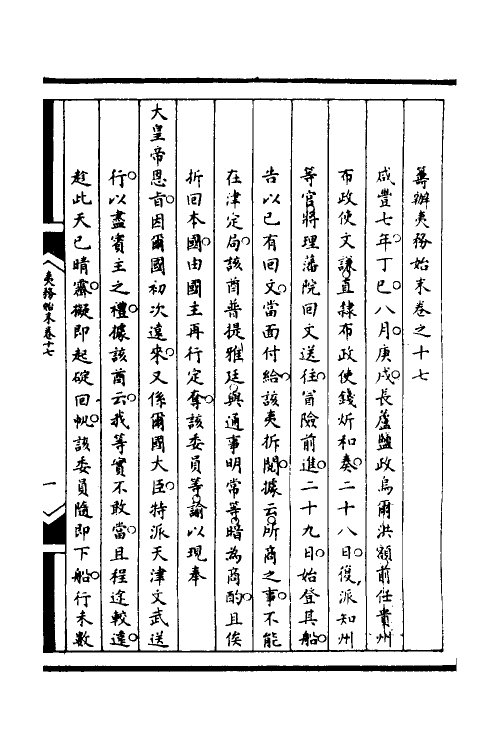 籌辦夷務始末卷之十七
咸豐七年丁巳八月庚戌長蘆鹽政烏爾洪額前任貴州
布政使文謙直隸布政使錢炘和奏二十八日復派知州
等官將理藩院回文送往冒險前進二十九日始登其船
告以已有回文當面付給該夷拆閱據云所商之事不能
在津定局該酋普提雅廷與通事明常等暗為商酌且俟
折回本國由國主再行定奪該委員等諭以現奉
大皇帝恩旨因爾國初次遠來又係爾國大臣特派天津文武送
行以盡賓主之禮據該酋云我等實不敢當且程途較遠
趁此天已晴霽擬即起碇回帆該委員隨即下船行未數
夷務始末卷十七
一